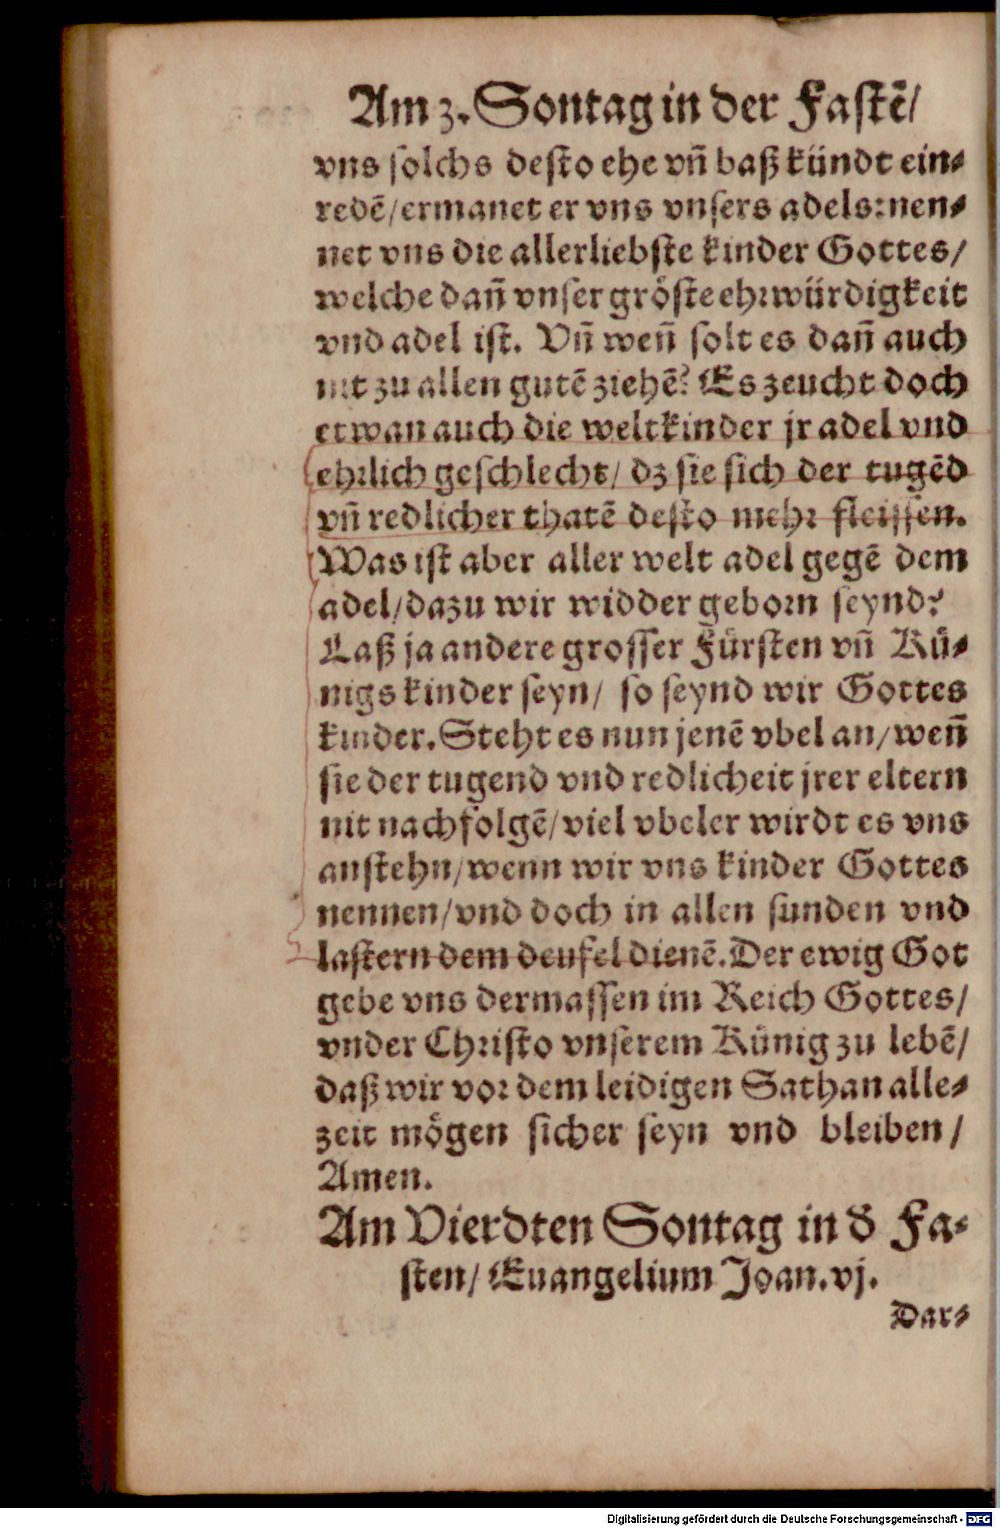 Am 3. Sontag in der Fastē/
vns solchs desto ehe vñ baß kündt ein⸗
redē/ermanet er vns vnsers adels:nen⸗
net vns die allerliebste kinder Gottes/
welche dañ vnser gröste ehrwürdigkeit
vnd adel ist. Vñ weñ solt es dañ auch
nit zu allen gutē ziehē? Es zeucht doch
etwan auch die weltkinder jr adel vnd
ehrlich geschlecht/ dz sie sich der tugēd
vñ redlicher thatē desto mehr fleissen.
Was ist aber aller welt adel gegē dem
adel/dazu wir widder geborn seynd?
Laß ja andere grosser Fürsten vñ Kü⸗
nigs kinder seyn/ so seynd wir Gottes
kinder. Steht es nun jenē vbel an/weñ
sie der tugend vnd redlicheit jrer eltern
nit nachfolgē/viel vbeler wirdt es vns
anstehn/wenn wir vns kinder Gottes
nennen/vnd doch in allen sunden vnd
lastern dem deufel dienē. Der ewig Got
gebe vns dermassen im Reich Gottes/
vnder Christo vnserem Künig zu lebē/
daß wir vor dem leidigen Sathan alle⸗
zeit mögen sicher seyn vnd bleiben/
Amen.
Am Vierdten Sontag in d̄ Fa⸗
sten/ Euangelium Joan. vj.
Dar⸗
Digitalisierung gefördert durch die Deutsche Forschungsgemeinschaft - DFG